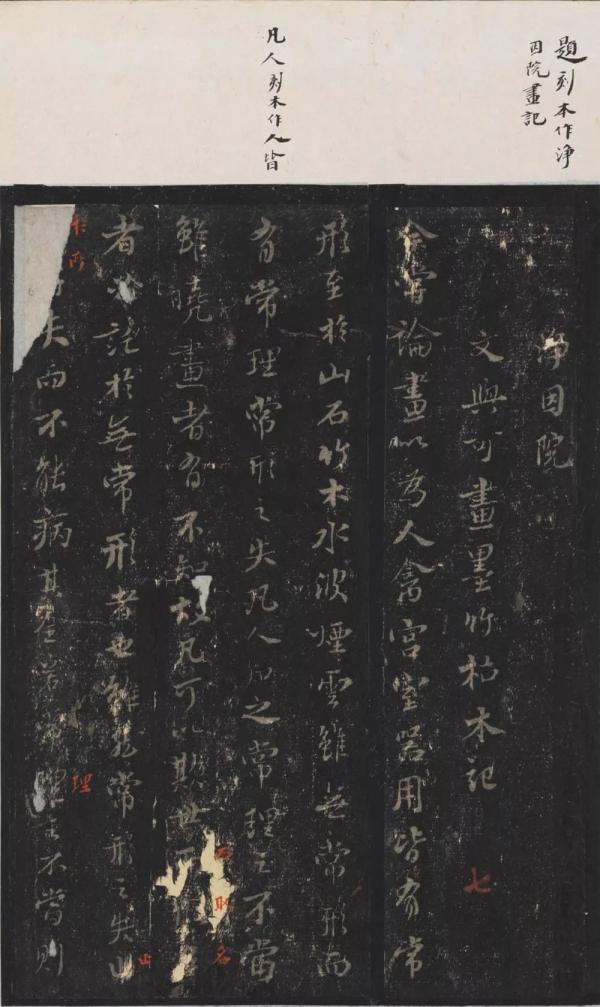 題刻木作淨
因院畫記
凡人刻木作人皆
淨因院
文與可畫墨竹枯木記 七
余嘗論畫以為人禽宮室器用皆有常
形至於山石竹木水波煙雲雖無常形而
有常理常形之失凡人知之常理之不當
雖曉畫者有不知故凡可以欺世而取名
者必託於無常形者也雖然常形之失止
於所失而不能病其全若常理之不當則
理
止